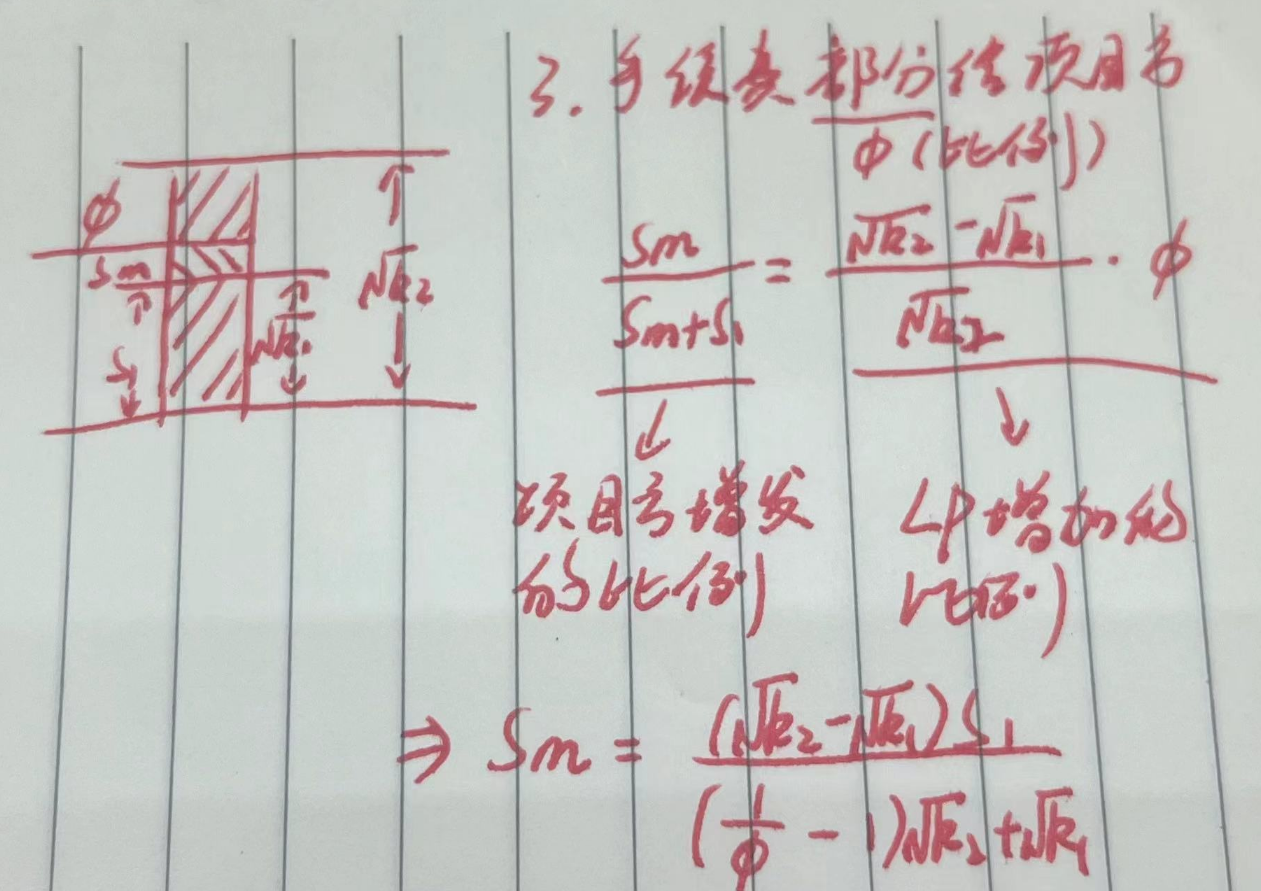 3. 手续费部分给项目方
φ(比例)
φ
Sm
S₁
√k₁
√k₂
Sm/(Sm+S₁) = (√k₂-√k₁)/√k₂ · φ
项目方增发的比例
LP增加的比例
⇒ Sm = (√k₂-√k₁)S₁/((1/φ - 1)√k₂+√k₁)